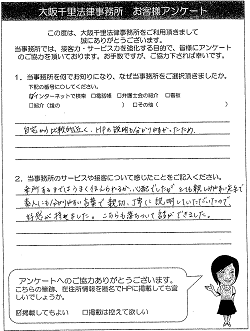 大阪千里法律事務所　お客様アンケート
この度は、大阪千里法律事務所をご利用頂きまして
誠にありがとうございます。
当事務所では、接客力・サービス力を強化する目的で、皆様にアンケート
のご協力を頂いております。お手数ですが、ご協力下されば幸いです。
1．当事務所を何でお知りになり、なぜ当事務所をご選択頂きましたか。
下記の番号に○してください。
インターネットで検索　□電話帳　□弁護士会の紹介　□看板
□紹介（　　　の　　　）　□その他（　　　）
自宅から比較的近く、HPの説明も分かりやすかったため。
2．当事務所のサービスや接客について感じたことをご記入ください。
来所するまではうまく伝えられるか、心配でしたが
素人にも分かりやすい言葉で親切、丁寧に説明していただいたので、
好感が持てました。こちらも落ちついて話ができました。
アンケートへのご協力ありがとうございます。
こちらの筆跡、個住所情報を匿名でHPに掲載しても宜
しいでしょうか。
掲載してもよい　□掲載は控えて欲しい